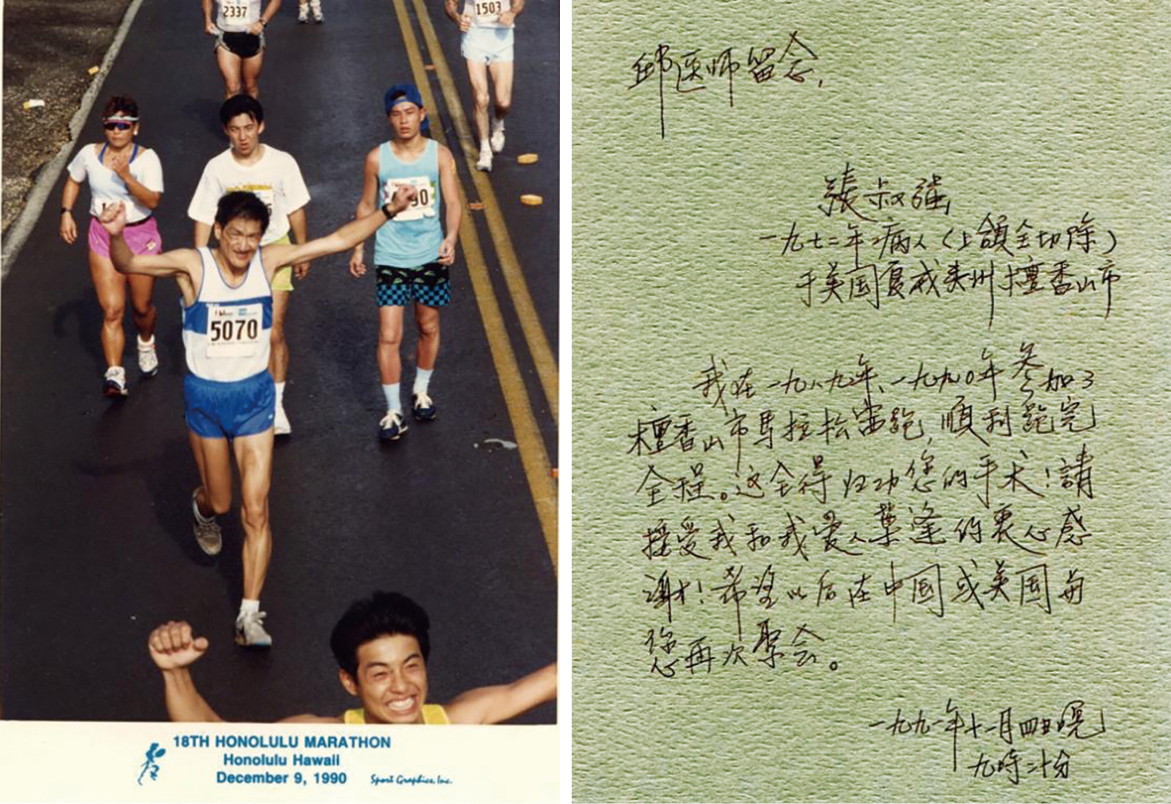 2337
1503
5070
18TH HONOLULU MARATHON
Honolulu Hawaii
December 9, 1990 Sport Graphics, Inc.
邱医师留念,
張叔强,
一九七二年病人(上頜全切除)
于美国夏威夷州檀香山市
我在一九八九年、一九九〇年参加了
檀香山市馬拉松赛跑,順利跑完
全程。这全得归功您的手术!請
接受我和我爱人的衷心感
谢!希望以后在中国或美国与
您再次聚会。
一九九一年十一月四日晚
九時二十分